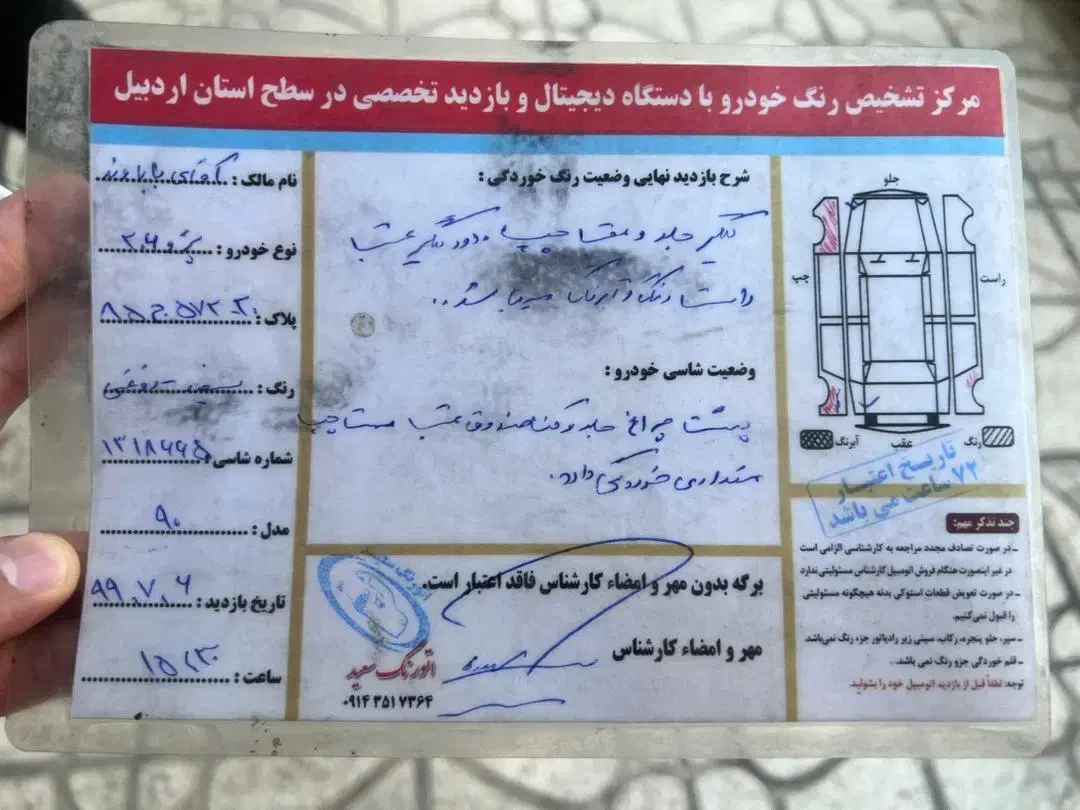 مرکز تشخیص رنگ خودرو با دستگاه دیجیتال و بازدید تخصصی در سطح استان اردبیل
جلو
راست
چپ
عقب
رنگ
آبرنگ
تاریخ اعتبار
۷۲ ساعت می باشد
چند تذکر مهم:
ـ در صورت تصادف مجدد مراجعه به کارشناسی الزامی است
در غیر اینصورت هنگام فروش اتومبیل کارشناس مسئولیتی ندارد
ـ در صورت تعویض قطعات استوکی بدنه هیچگونه مسئولیتی
را قبول نمی‌کنیم.
ـ سپر، جلو پنجره، رکاب، سینی زیر رادیاتور جزء رنگ نمی‌باشد.
ـ قلم خوردگی جزو رنگ نمی باشد .
توجه: لطفاً قبل از بازدید اتومبیل خود را بشوئید.
شرح بازدید نهایی وضعیت رنگ خوردگی :
گلگیر جلو و عقب چپ و دور گلگیر عقب
راست رنگ و آبرنگ میباشد..
وضعیت شاسی خودرو :
پشت چراغ جلو و کف صندوق عقب سمت چپ
مقداری خوردگی دارد.
برگه بدون مهر و امضاء کارشناس فاقد اعتبار است.
مهر و امضاء کارشناس
اتورنگ سعید
۰۹۱۴ ۳۵۱ ۷۳۶۴
نام مالک : آقای
نوع خودرو : پژو ۲۰۶
پلاک :
رنگ : سفید روغنی
شماره شاسی :
مدل : ۹۰
تاریخ بازدید : ۹۹.۷.۶
ساعت : ۱۵،۳۰